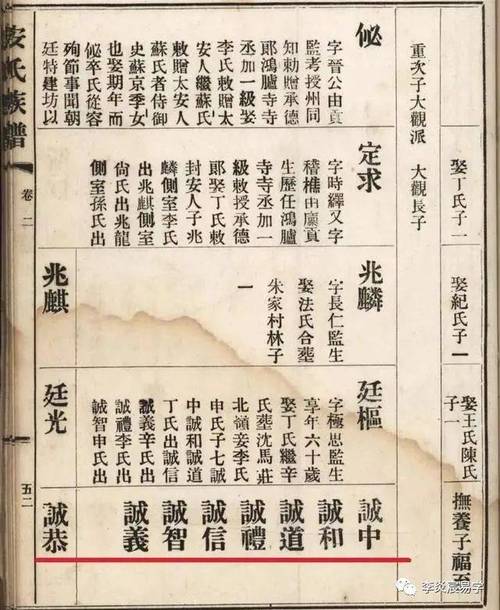 娶丁氏子一
娶紀氏子一
娶王氏陳氏子一
撫養子福至
重次子大觀派 大觀長子
佖
字晉公由貢
監考授州同
知勅贈承德
郎鴻臚寺寺
丞加一級娶
李氏敕贈太
安人繼蘇氏
敕贈太安人
蘇氏者侍御
史蘇京季女
也娶期年而
佖卒氏從容
殉節事聞朝
廷特建坊以
定求
字時繹又字
稽樵由廩貢
生歷任鴻臚
寺寺丞加一
級敕授承德
郎娶丁氏敕
封安人子兆
麟側室李氏
出兆麒側室
尙氏出兆龍
側室孫氏出
兆麟
字長仁監生
娶法氏合葬
朱家村林子
一
兆麒
廷樞
字極思監生
享年六十歲
娶丁氏繼辛
氏葬沈馬莊
北嶺妾李氏
申氏子七誠
中誠和誠道
丁氏出誠信
誠義辛氏出
誠禮李氏出
誠智申氏出
廷光
誠中
誠和
誠道
誠禮
誠信
誠智
誠義
誠恭
安氏族譜
卷二
五二
李炎晟易字